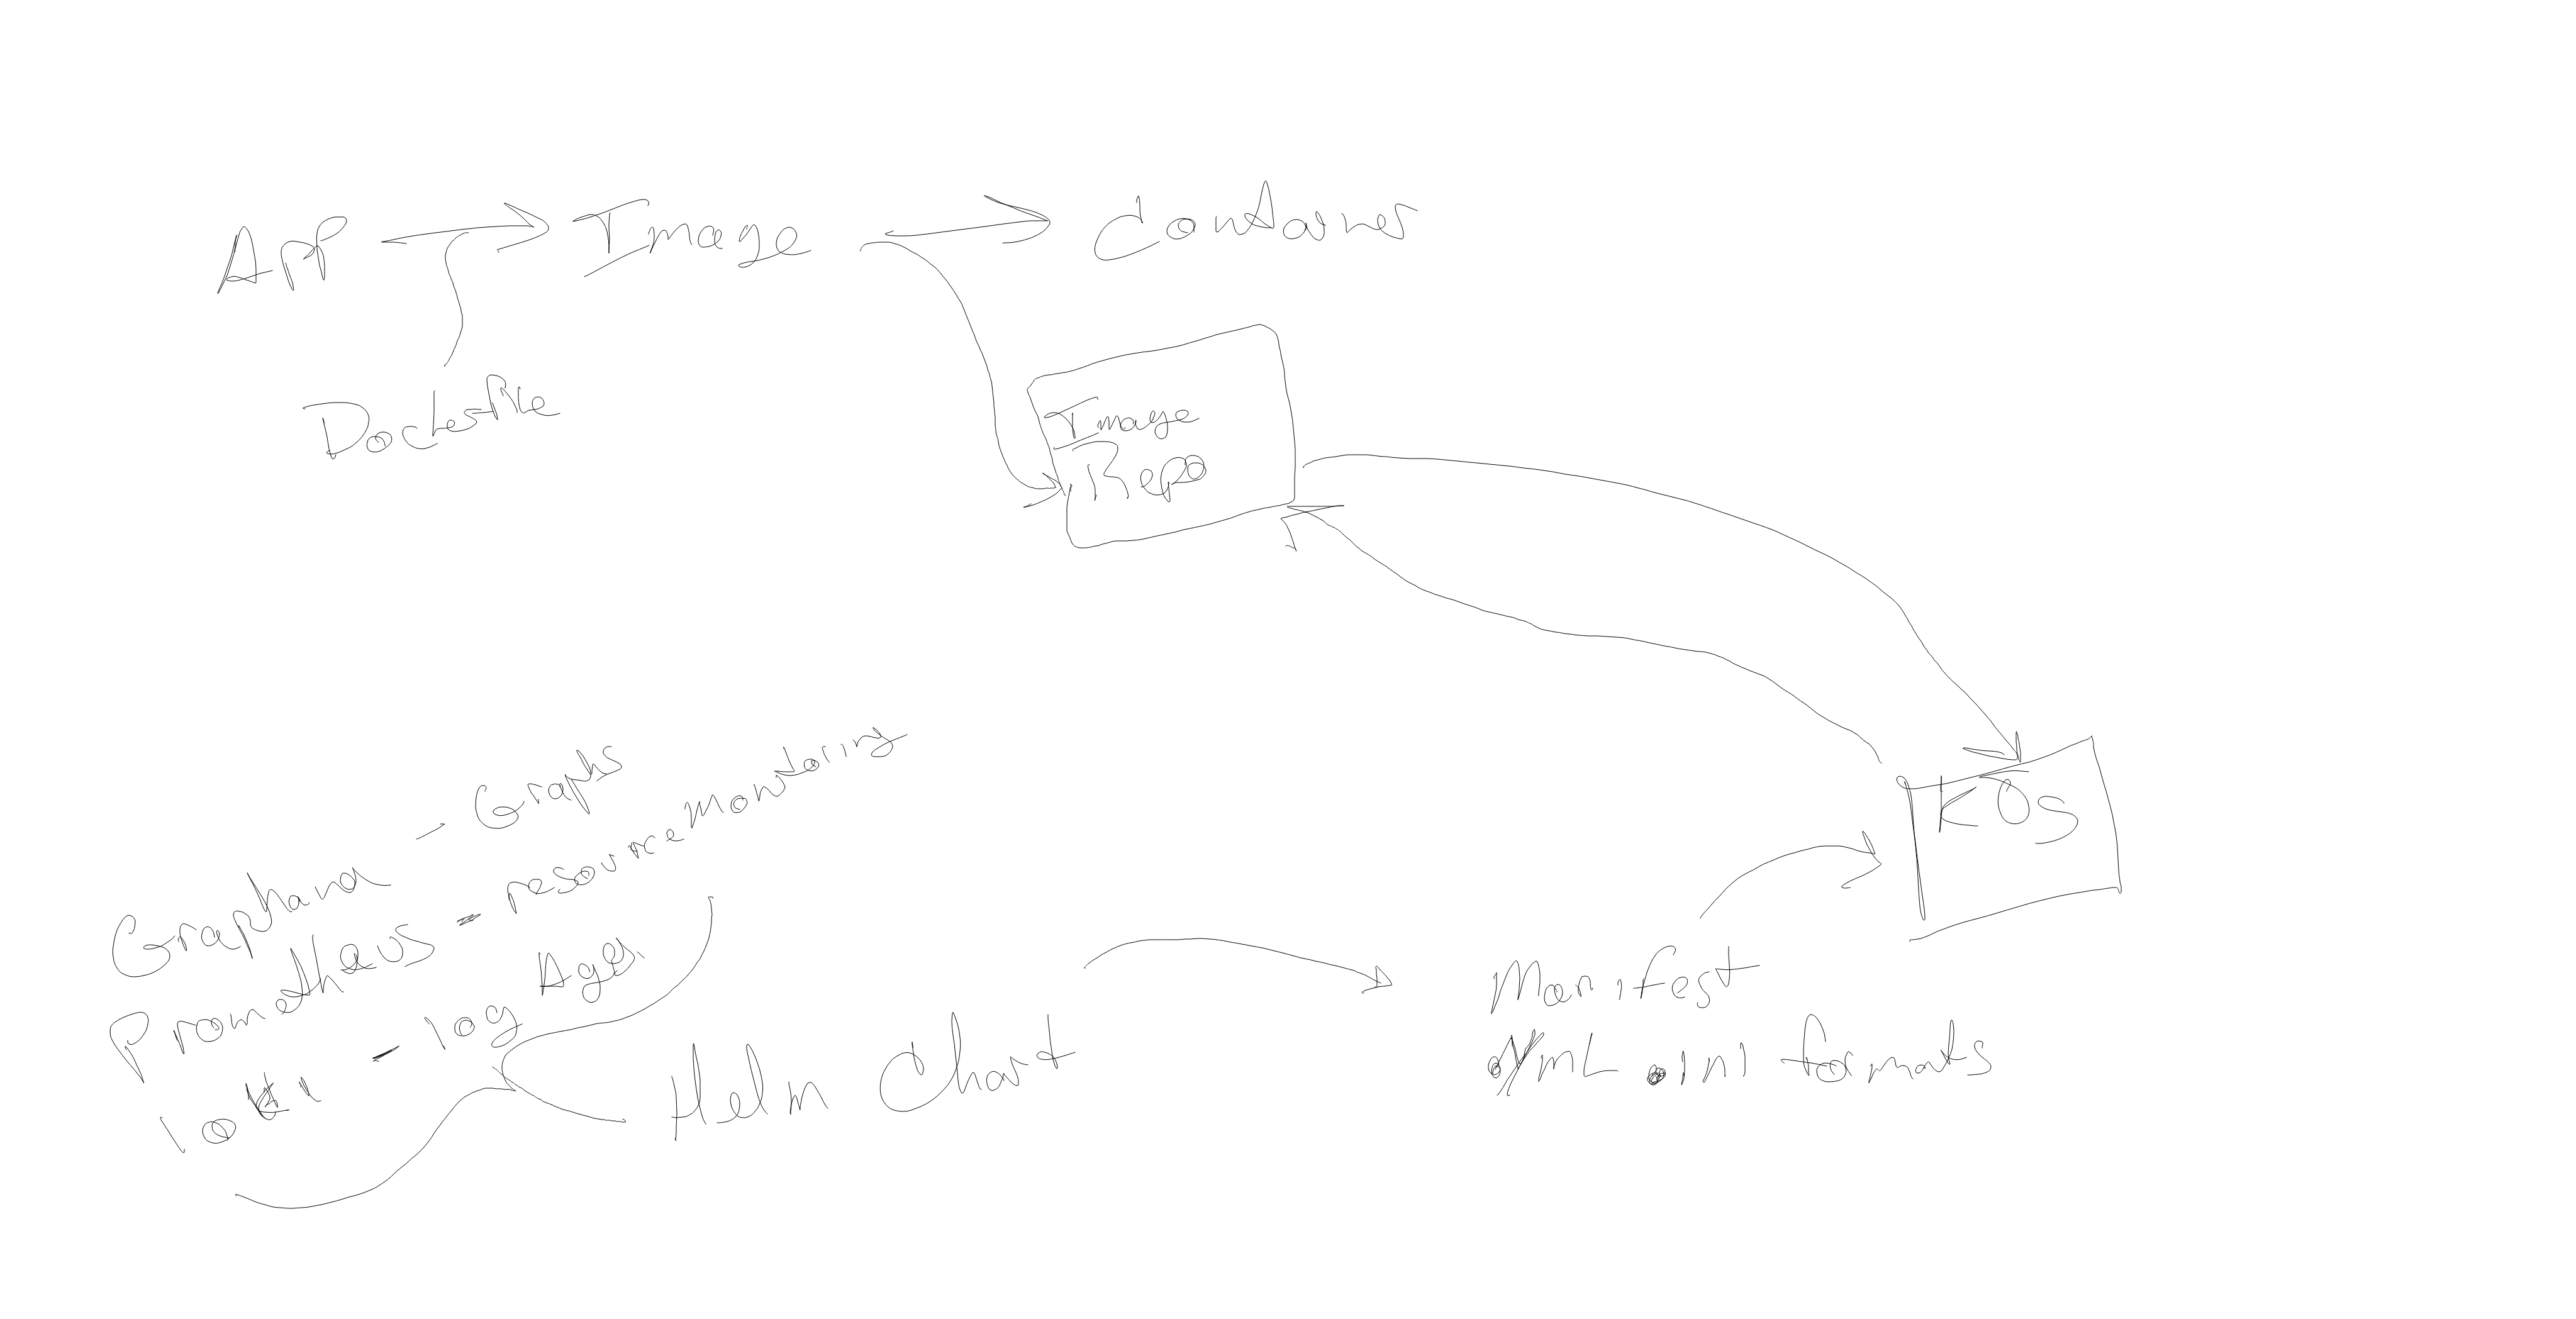 App → Image → Container
Dockerfile
Image
Repo
K8s
Graphana - Graphs
Promethaus - resource Monitoring
loki - log Ages
Helm Chart
Manifest
.YmL .ini formats